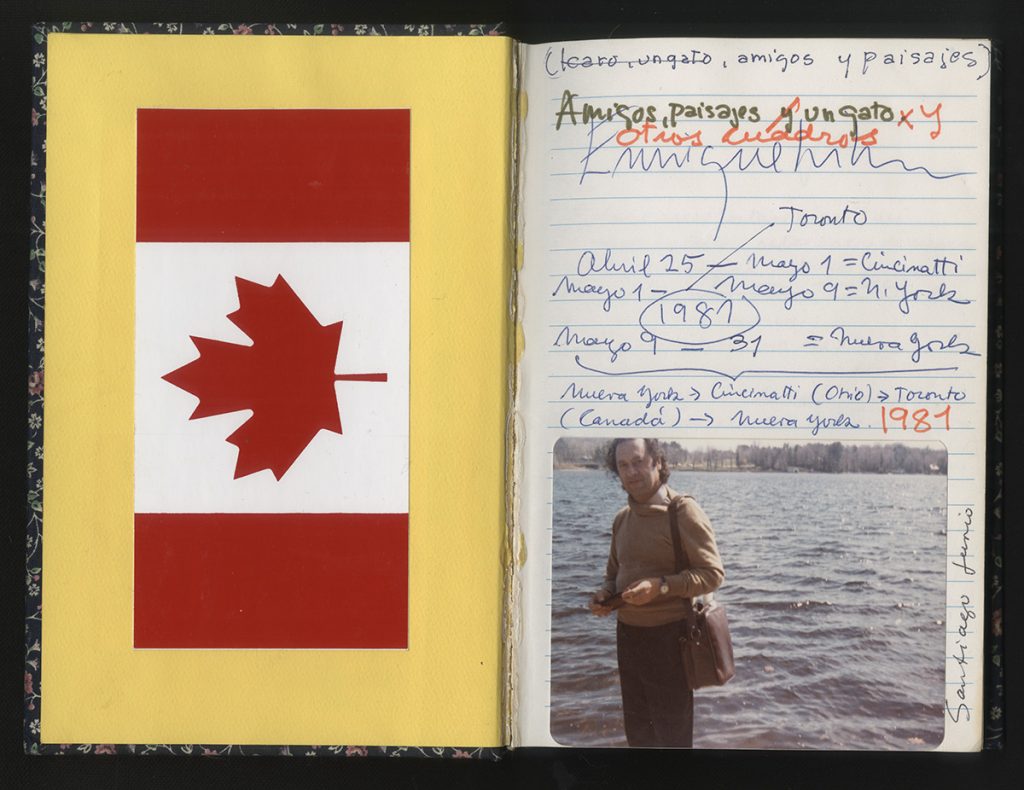 (Icaro, un gato, amigos y paisajes)
Amigos, paisajes y un gato x y
otros cuadros
Enrique Lihn
Toronto
Abril 25 — Mayo 1 = Cincinatti
Mayo 1 — Mayo 9 = N. York
1981
Mayo 9 — 31 = Nueva York
Nueva York → Cincinatti (Ohio) → Toronto
(Canadá) → Nueva York. 1981
Santiago junio